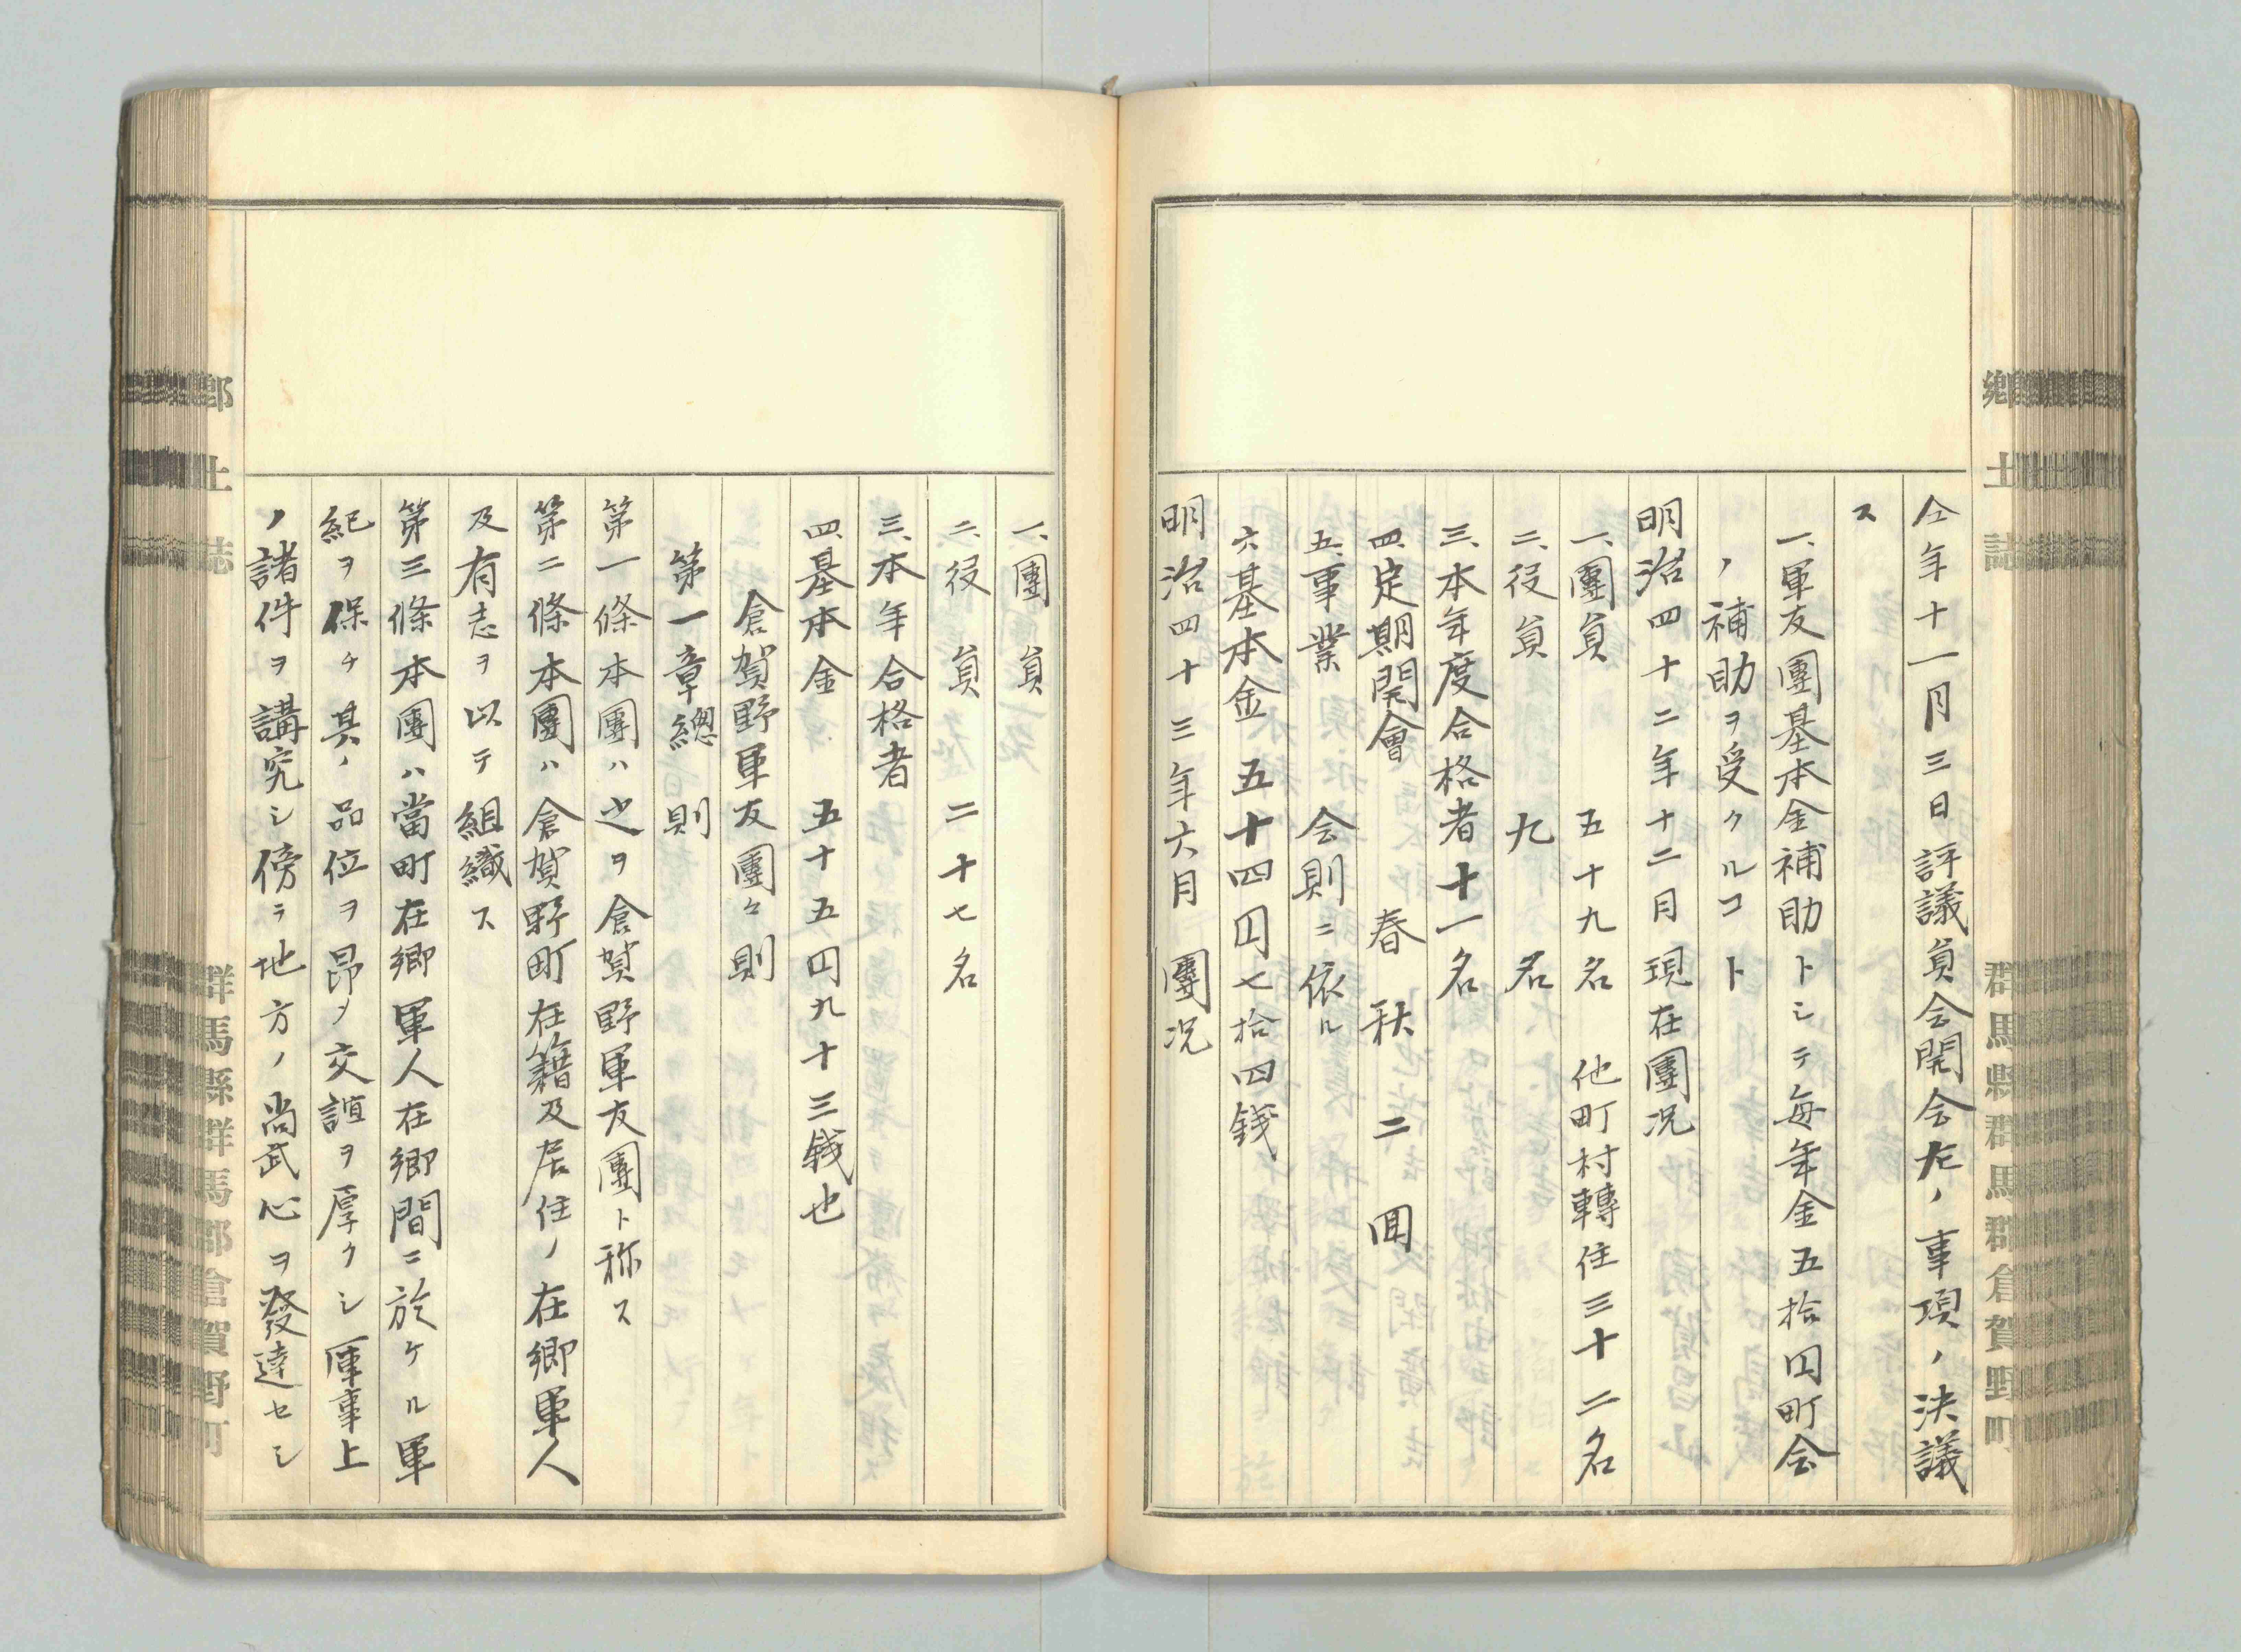 郷土誌
群馬縣群馬郡倉賀野町
仝年十一月三日評議員会開会左ノ事項ノ決議
ス
一、軍友團基本金補助トシテ毎年金五拾円町会
ノ補助ヲ受クルコト
明治四十二年十二月現在團况
一、團員 五十九名 他町村轉住三十二名
二、役員 九名
三、本年度合格者十一名
四、定期開會 春秋二回
五、事業 会則ニ依ル
六、基本金 五十四円七拾四銭
明治四十三年六月 團况
一、團員
二、役員 二十七名
三、本年合格者
四、基本金 五十五円九十三銭也
倉賀野軍友團々則
第一章總則
第一條本團ハ之ヲ倉賀野軍友團ト称ス
第二條本團ハ倉賀野町在籍及居住ノ在郷軍人
及有志ヲ以テ組織ス
第三條本團ハ當町在郷軍人在郷間ニ於ケル軍
紀ヲ保チ其ノ品位ヲ昂メ交誼ヲ厚クシ軍事上
ノ諸件ヲ講究シ傍ラ地方ノ尚武心ヲ發達セシ
郷土誌
群馬縣群馬郡倉賀野町